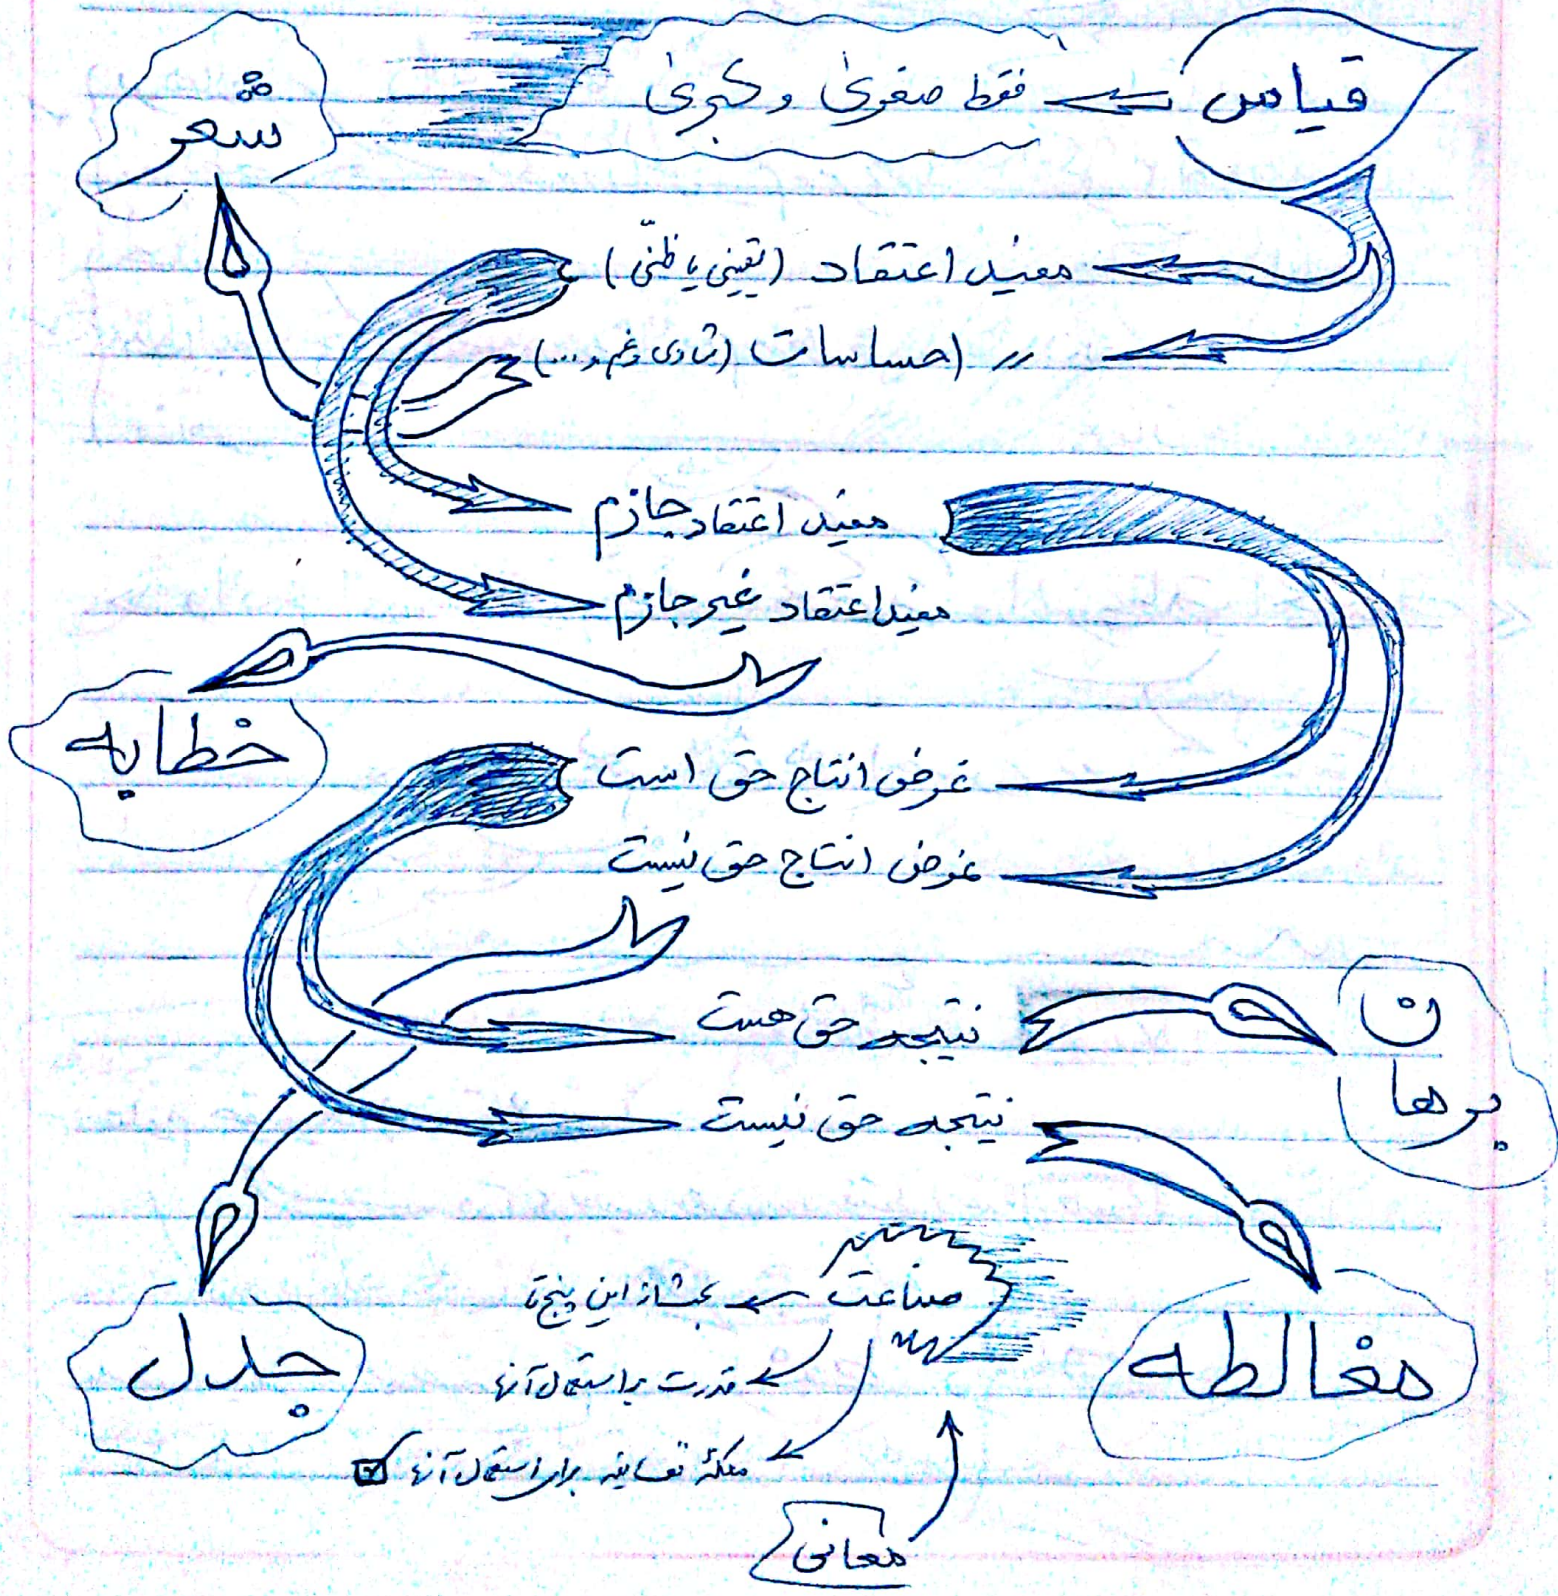 قیاس ← فقط صغری و کبری
شعر
مفید اعتقاد (یقینی یا ظنّی)
〃 احساسات (شادی و غم و...)
مفید اعتقاد جازم
مفید اعتقاد غیر جازم
خطابه
غرض انتاج حق است
غرض انتاج حق نیست
نتیجه حق هست
برهان
نتیجه حق نیست
صناعت ← بحث از این پنج تا
قدرت بر استعمال آنها
ملکهٔ نفسانیه برای استعمال آنها ☑
مغالطه
جدل
معانی